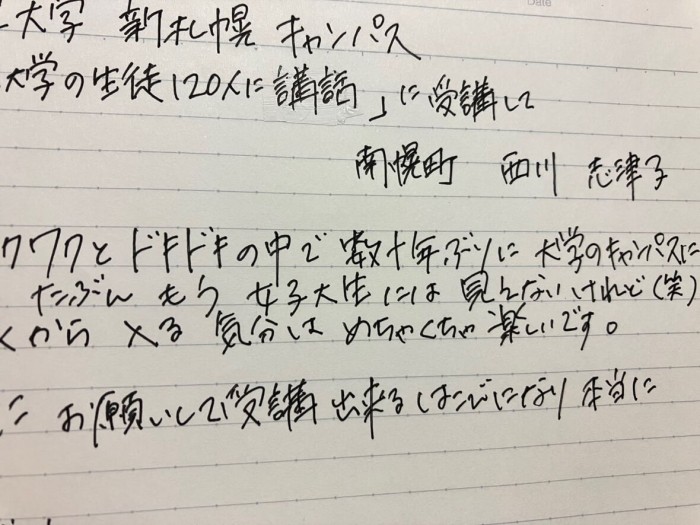 大学 新札幌 キャンパス
大学の生徒120人に講話」に受講して
南幌町 西川 志津子
クワクと ドキドキの中で 数十年ぶりに 大学のキャンパスに
たぶん もう 女子大生には 見えないけれど(笑)
くから 入る 気分は めちゃくちゃ 楽しいです。
に お願いして受講 出来る はこびになり 本当に